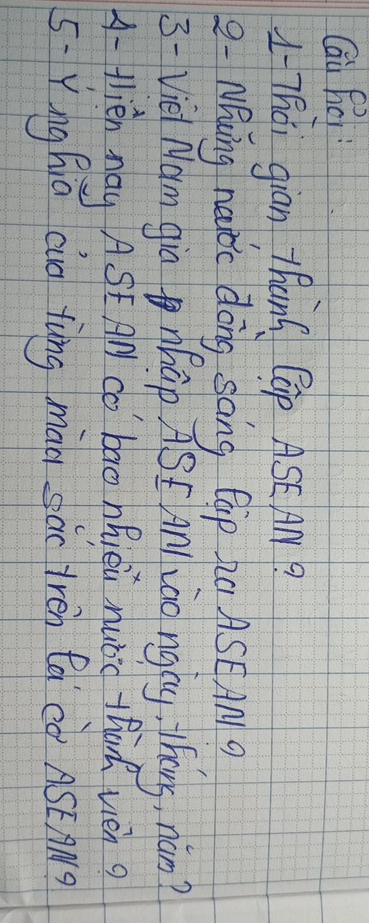 Câu hỏi:
1- Thời gian thành lập ASEAN?
2- Những nước đồng sáng lập ra ASEAN?
3- Việt Nam gia nhập ASEAN vào ngày, tháng, năm?
4- Hiện nay ASEAN có bao nhiêu nước thành viên?
5- Ý nghĩa của từng màu sắc trên lá cờ ASEAN?